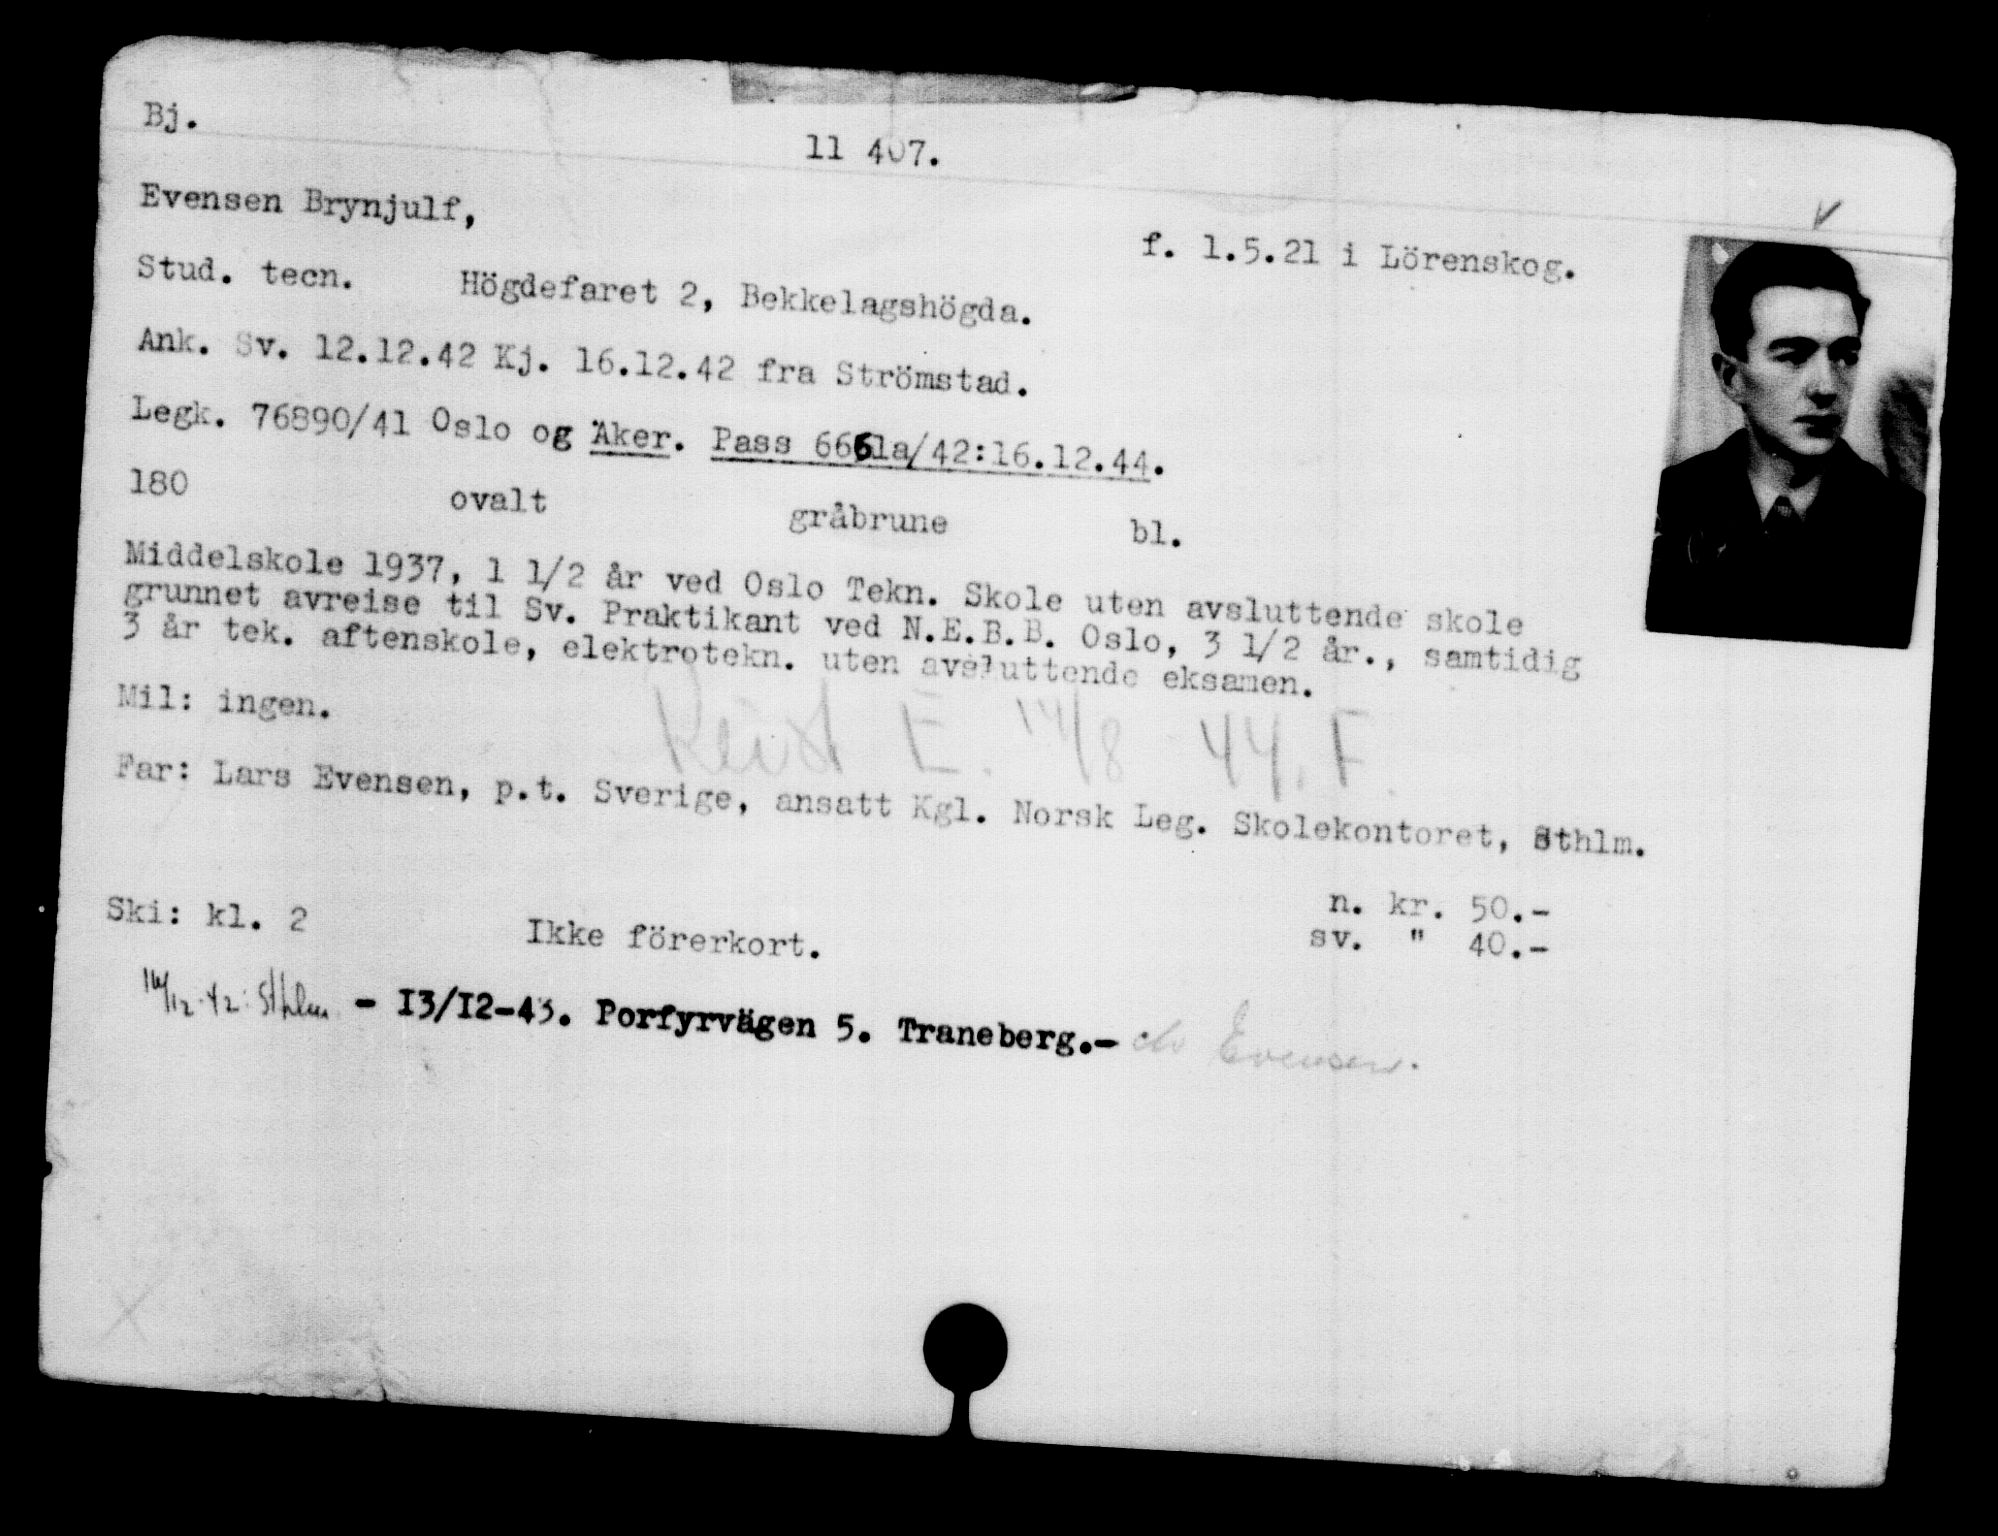 Bj.
11 407.
Evensen Brynjulf,
f. 1.5.21 i Lörenskog.
Stud. tecn. Högdefaret 2, Bekkelagshögda.
Ank. Sv. 12.12.42 Kj. 16.12.42 fra Strömstad.
Legk. 76890/41 Oslo og Äker. Pass 6661a/42:16.12.44.
180 ovalt gråbrune bl.
Middelskole 1937, 1 1/2 år ved Oslo Tekn. Skole uten avsluttende skole
grunnet avreise til Sv. Praktikant ved N.E.B.B. Oslo, 3 1/2 år., samtidig
3 år tek. aftenskole, elektrotekn. uten avsluttende eksamen.
Mil: ingen.
Reist E. 14/8 44. F.
Far: Lars Evensen, p.t. Sverige, ansatt Kgl. Norsk Leg. Skolekontoret, Sthlm.
n. kr. 50.-
Ski: kl. 2 Ikke förerkort. sv. " 40.-
16/12-42: Sthlm - 13/12-43. Porfyrvägen 5. Traneberg.- c/o Evensen.